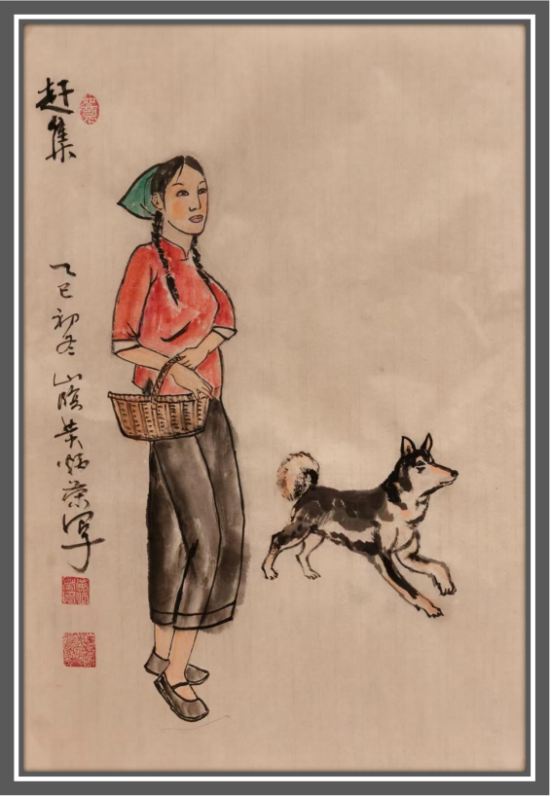 赶集
乙巳初冬 山阴黄炳荣写